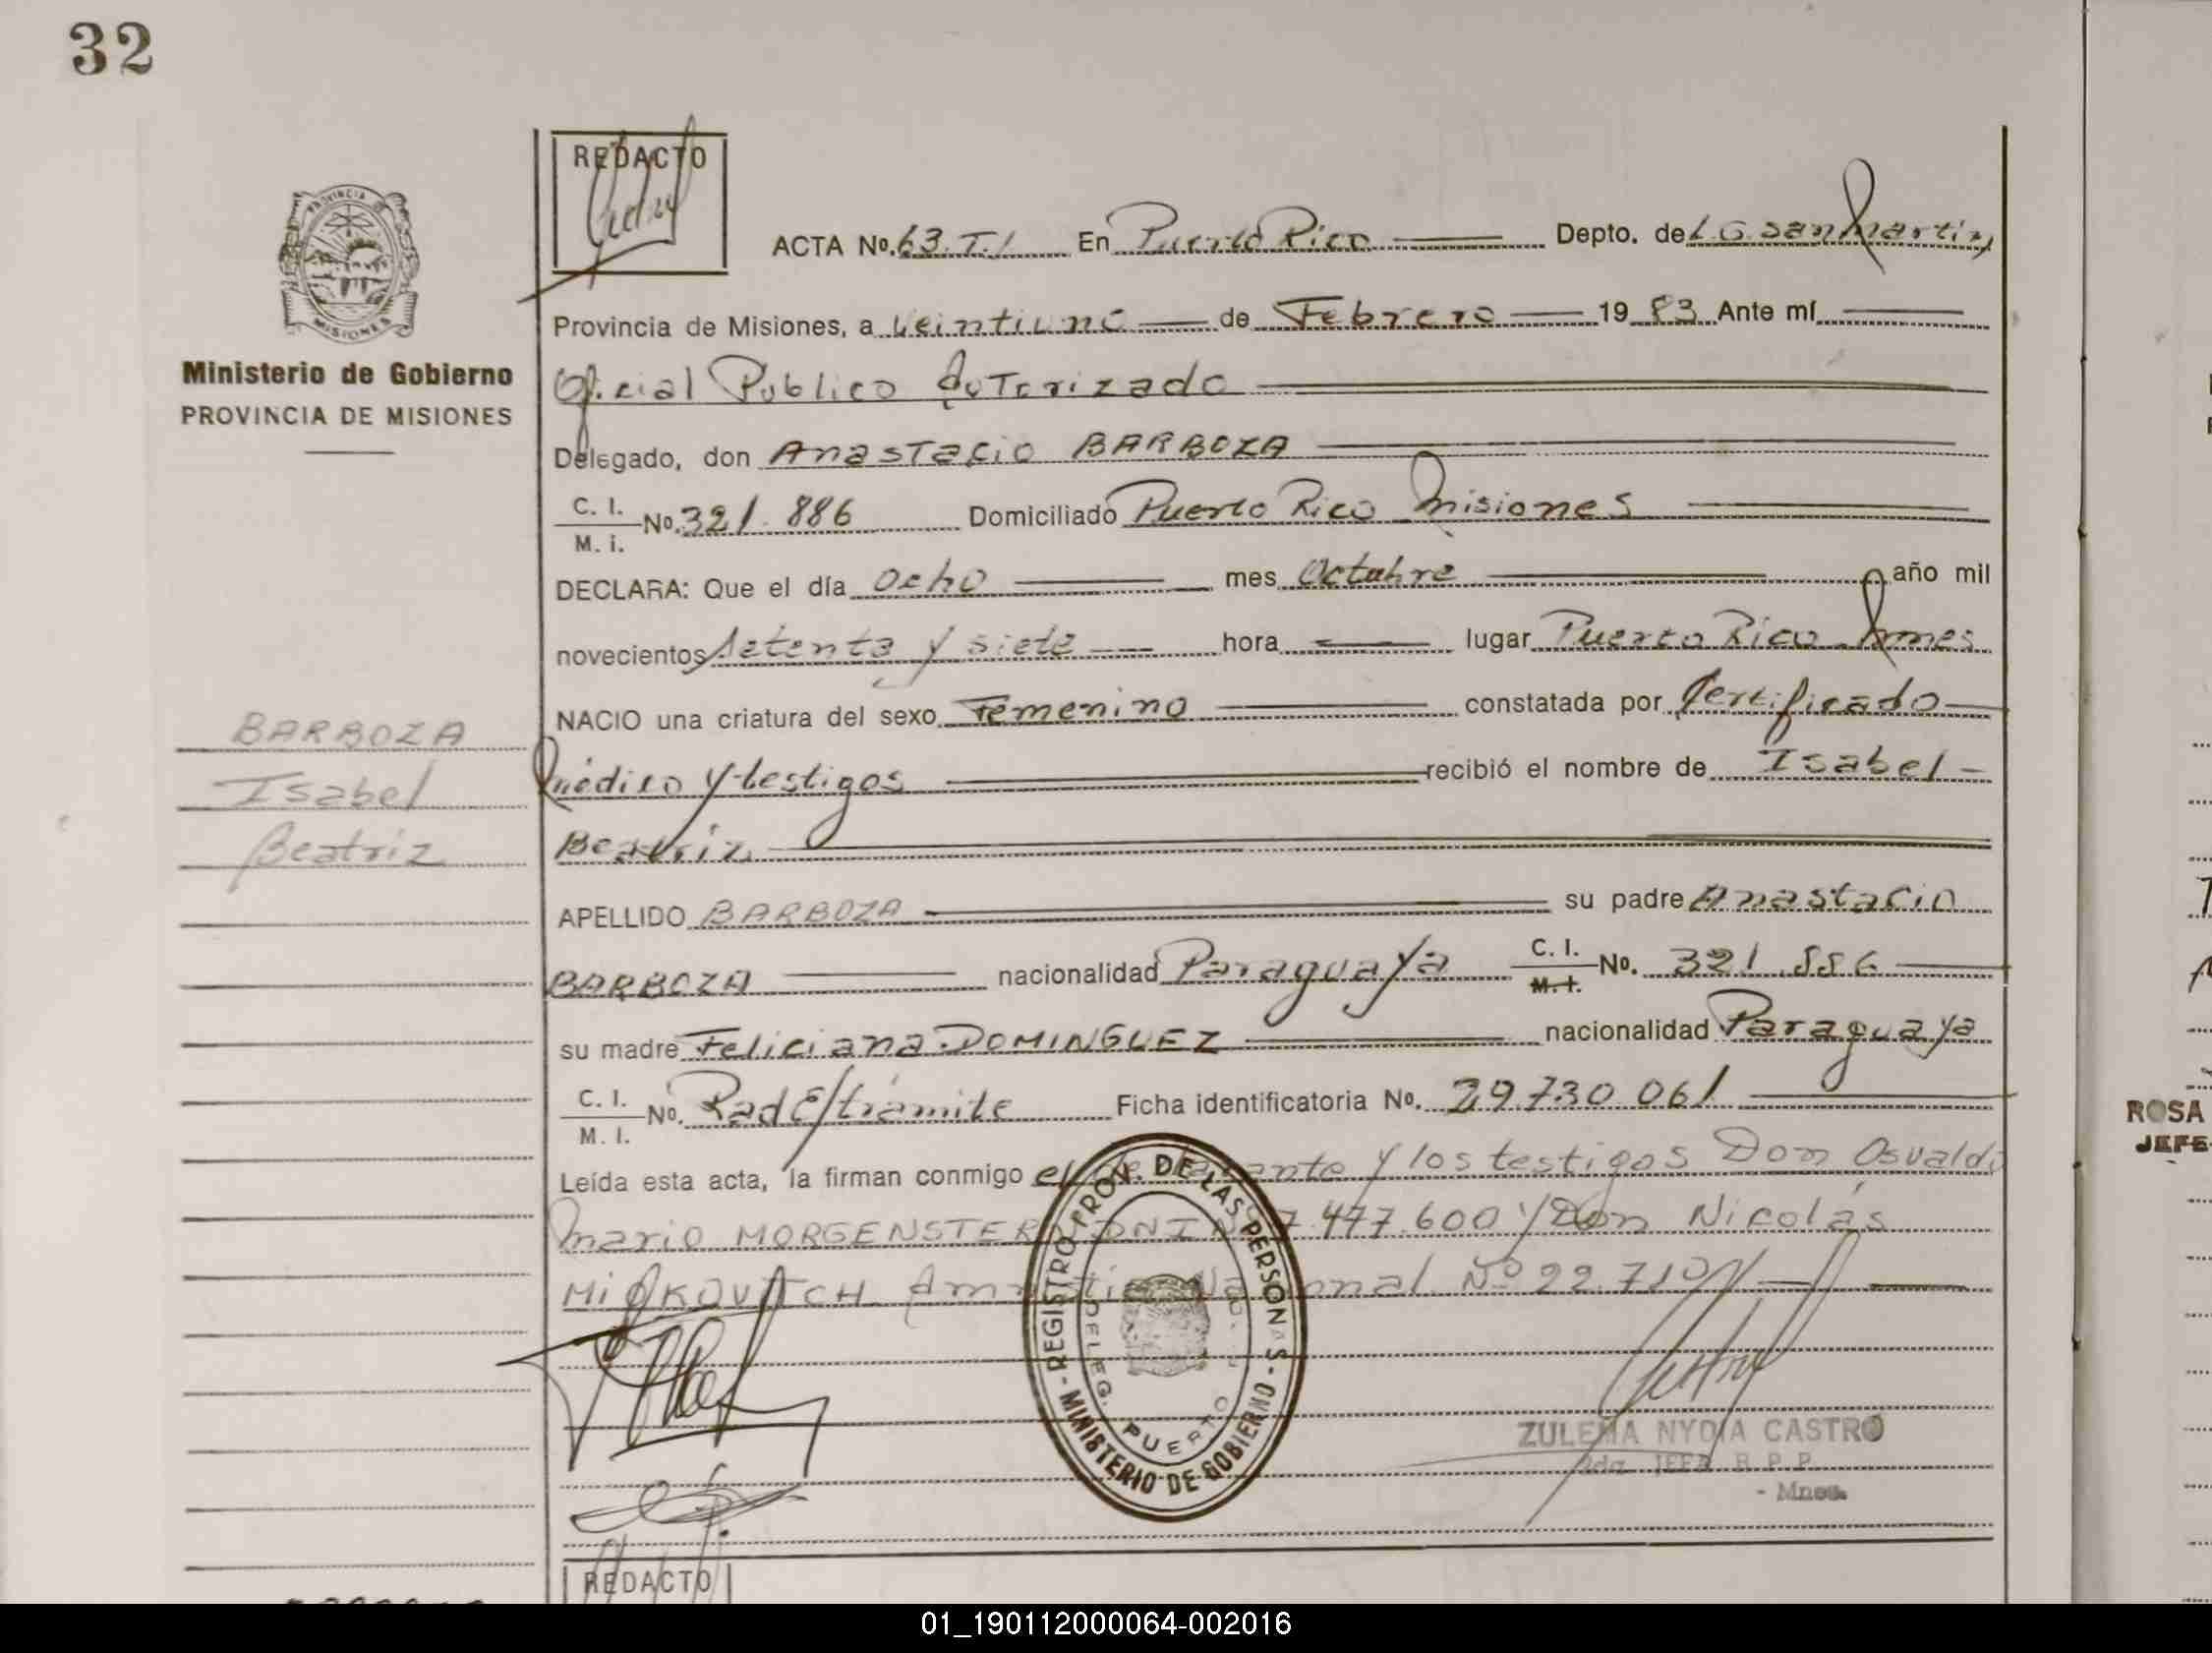 32
REDACTO
ACTA No. 63.T.I En Puerto Rico Depto. de L.G. San Martin
Provincia de Misiones, a veintiuno de Febrero 1983 Ante mí
Oficial Publico Autorizado
Ministerio de Gobierno
PROVINCIA DE MISIONES
Delegado, don Anastacio BARBOZA
C. I.
M. i. No. 321.886 Domiciliado Puerto Rico Misiones
DECLARA: Que el día ocho mes Octubre año mil
novecientos setenta y siete hora lugar Puerto Rico Mnes
NACIO una criatura del sexo Femenino constatada por Certificado
BARBOZA
Isabel
Beatriz
médico y testigos recibió el nombre de Isabel
Beatriz
APELLIDO BARBOZA su padre Anastacio
BARBOZA nacionalidad Paraguaya C. I. M. I. No. 321.886
su madre Feliciana DOMINGUEZ nacionalidad Paraguaya
C. I.
M. I. No. Rad E/tramite Ficha identificatoria No. 29.730 061
Leída esta acta, la firman conmigo el y los testigos Don Osvaldo
Mario MORGENSTERN DNI Nº 7.477.600 y Don Nicolás
MIRKOVITCH Amnistia Nacional Nº 22.710
REGISTRO PROV. DE LAS PERSONAS - MINISTERIO DE GOBIERNO -
DELEG. PUERTO
ZULEMA NYDIA CASTRO
2da. JEFA R.P.P.
- Mnes.
REDACTO
ROSA
JEFE
01_190112000064-002016